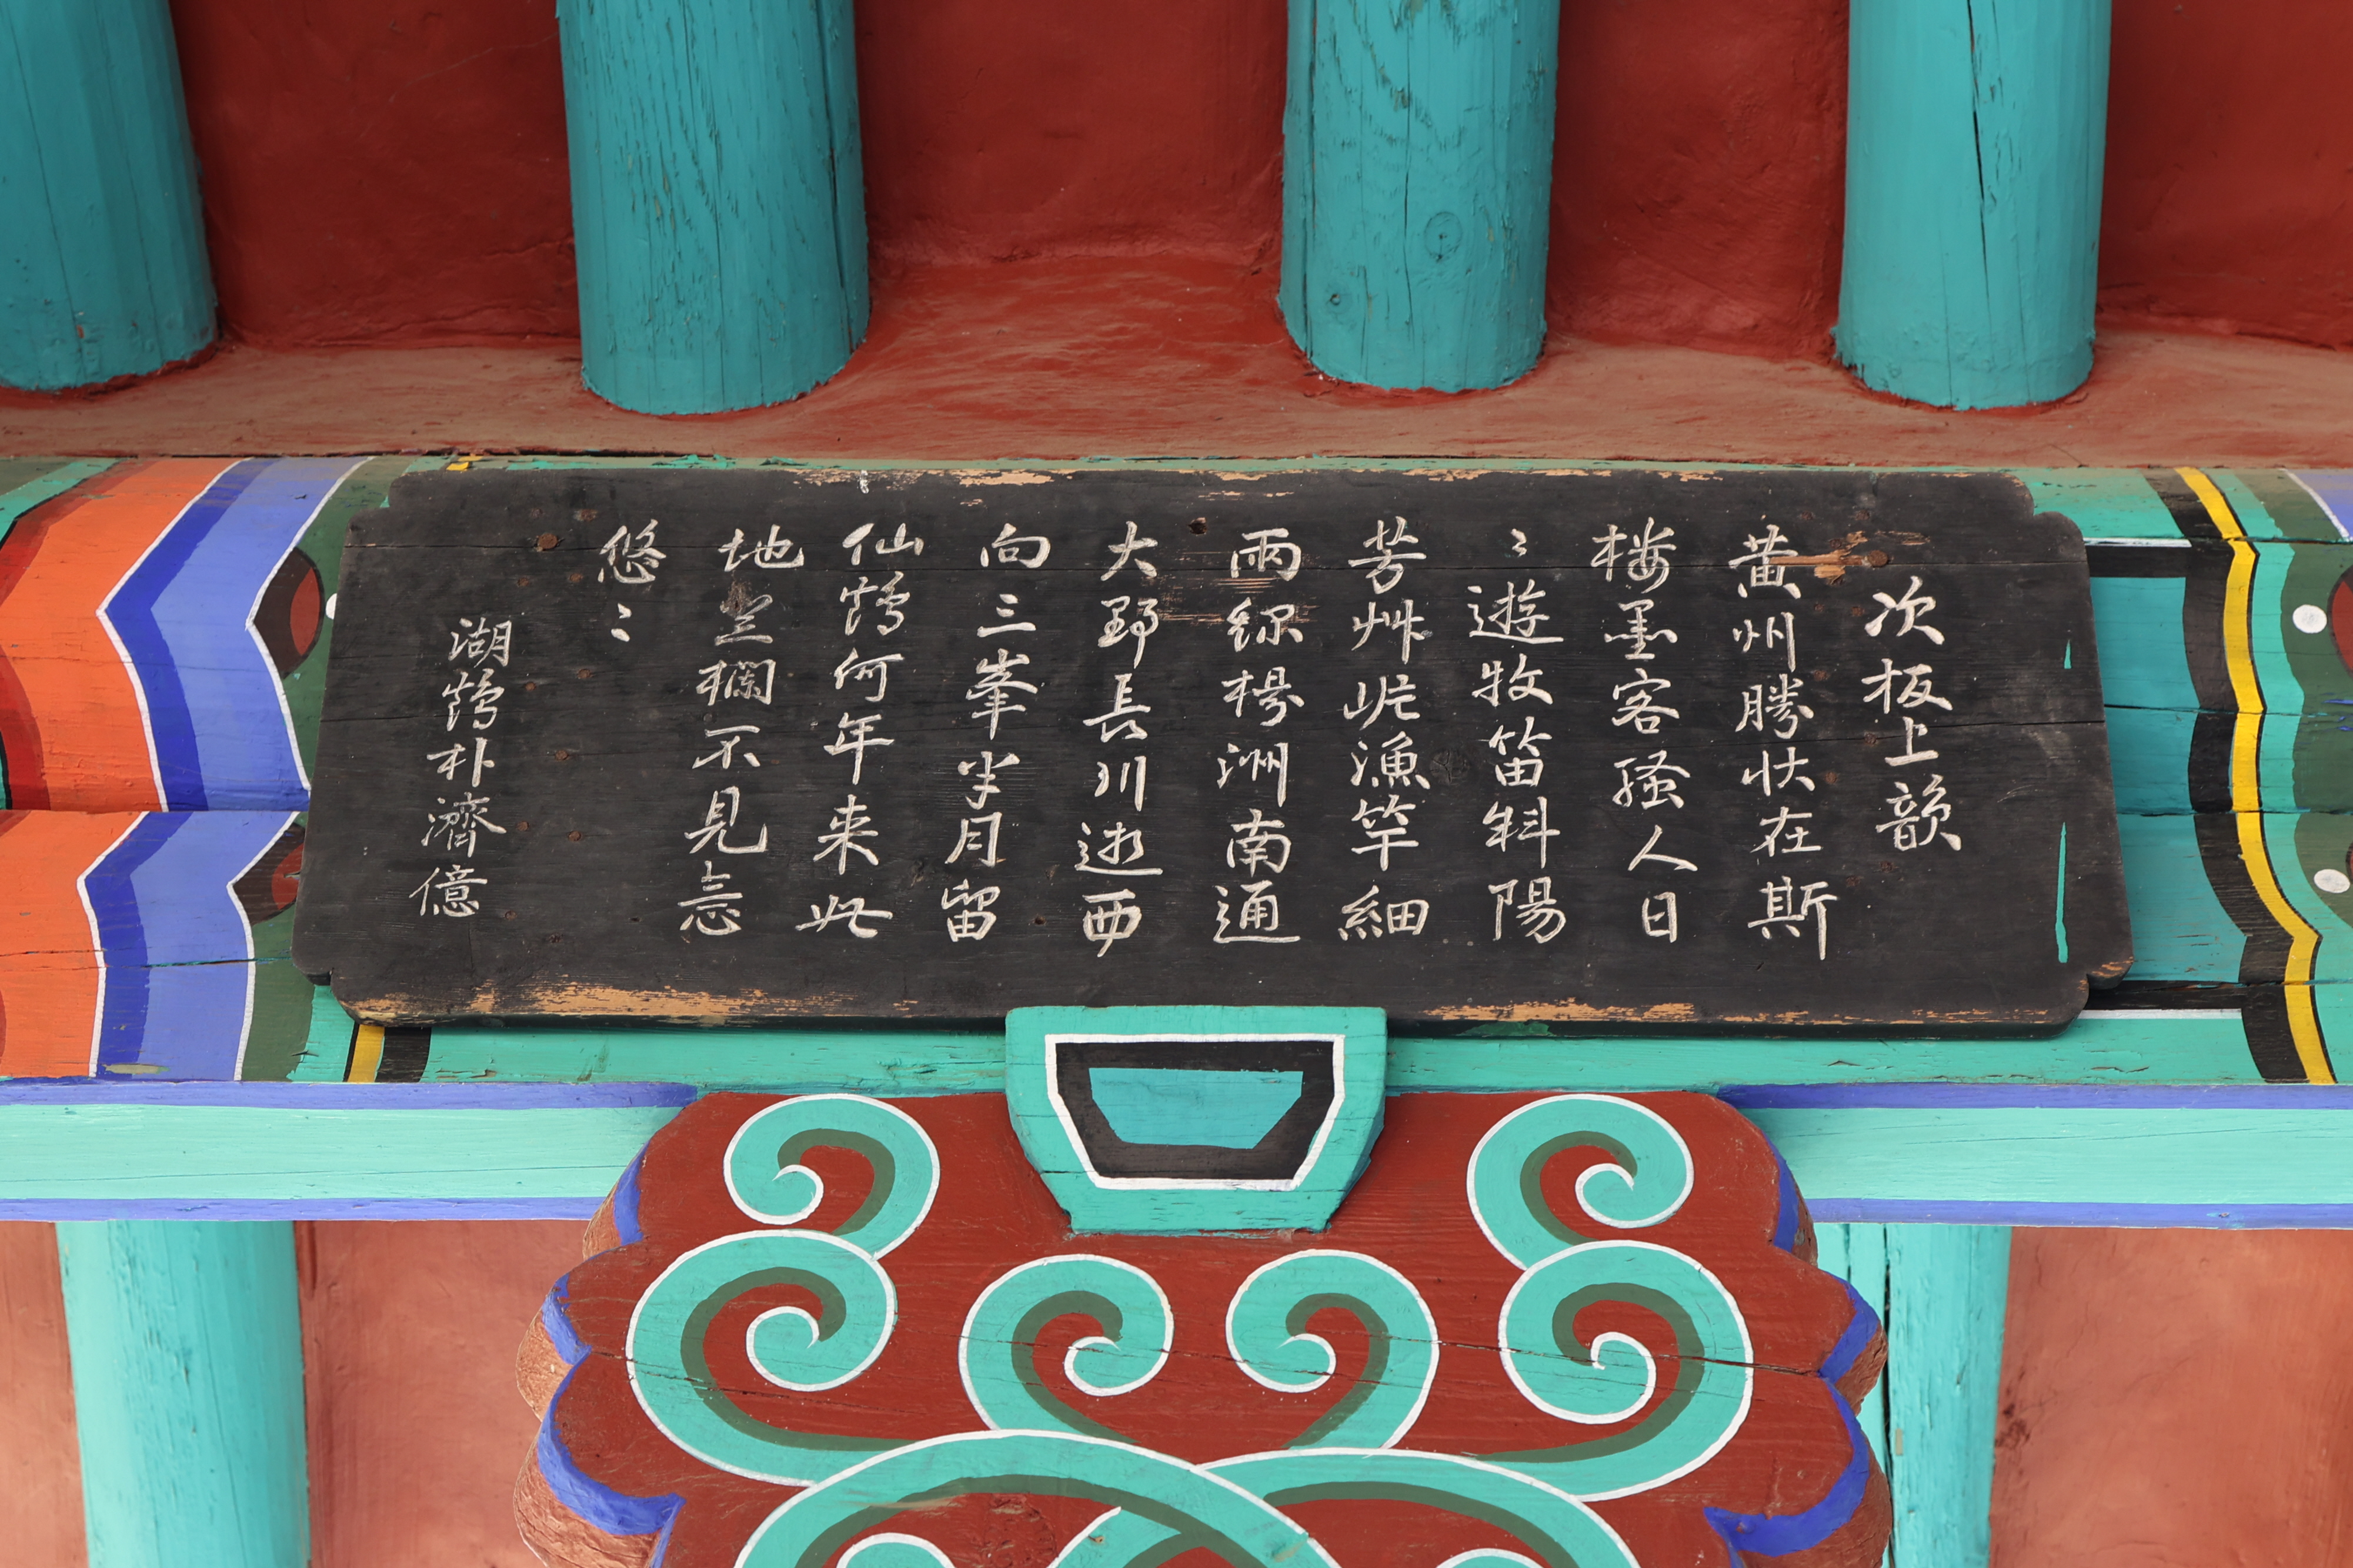 次板上韻
黄州勝状在斯
楼墨客騷人日
〻遊牧笛斜陽
芳艸岸漁竿細
雨綠楊洲南通
大野長川逝西
向三峯半月留
仙鶴何年来此
地欄不見意
悠〻
湖鶴朴濟億